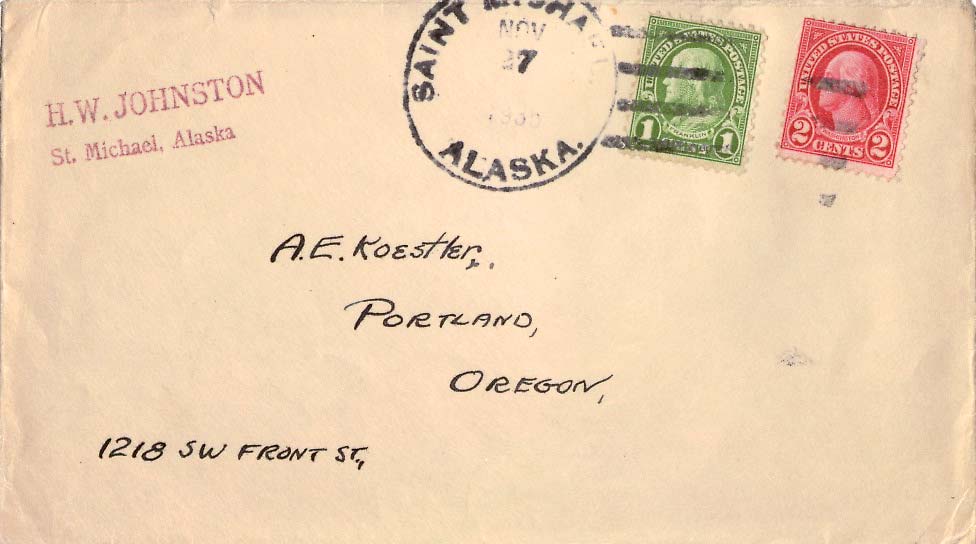 H.W. JOHNSTON
St. Michael, Alaska
SAINT MICHAEL
NOV
27
ALASKA.
UNITED STATES POSTAGE
1 FRANKLIN 1
UNITED STATES POSTAGE
WASHINGTON
2 CENTS 2
A.E. Koestler,
PORTLAND,
OREGON,
1218 SW FRONT ST.,